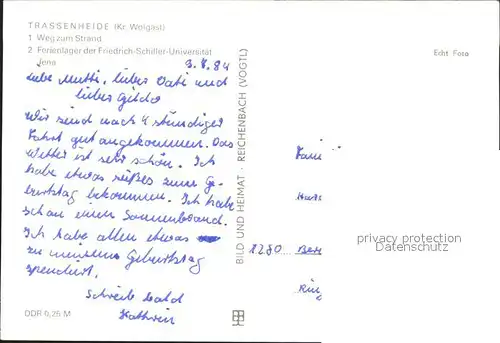 TRASSENHEIDE (Kr. Wolgast)
1 Weg zum Strand
2 Ferienlager der Friedrich-Schiller-Universität
Jena
Echt Foto
3.7.84
Liebe Mutti, lieber Vati und
lieber Gildo
Wir sind nach 4 stündiger
Fahrt gut angekommen. Das
Wetter ist sehr schön. Ich
habe etwas süßes zum Ge-
burtstag bekommen. Ich habe
schon einen Sonnenbrand.
Ich habe allen etwas
zu meinem Geburtstag
spendiert.
Schreibe bald
Kathrin
DDR 0,25 M
BILD UND HEIMAT · REICHENBACH (VOGTL)
Fami
Hans
1280 Ber
Ring
privacy protection
Datenschutz